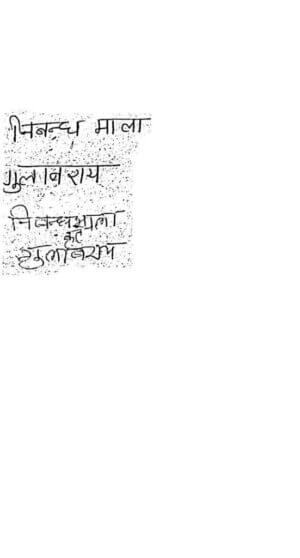 निबन्ध माला
गुलाब राय
निबन्धमाला
गुलाबराय